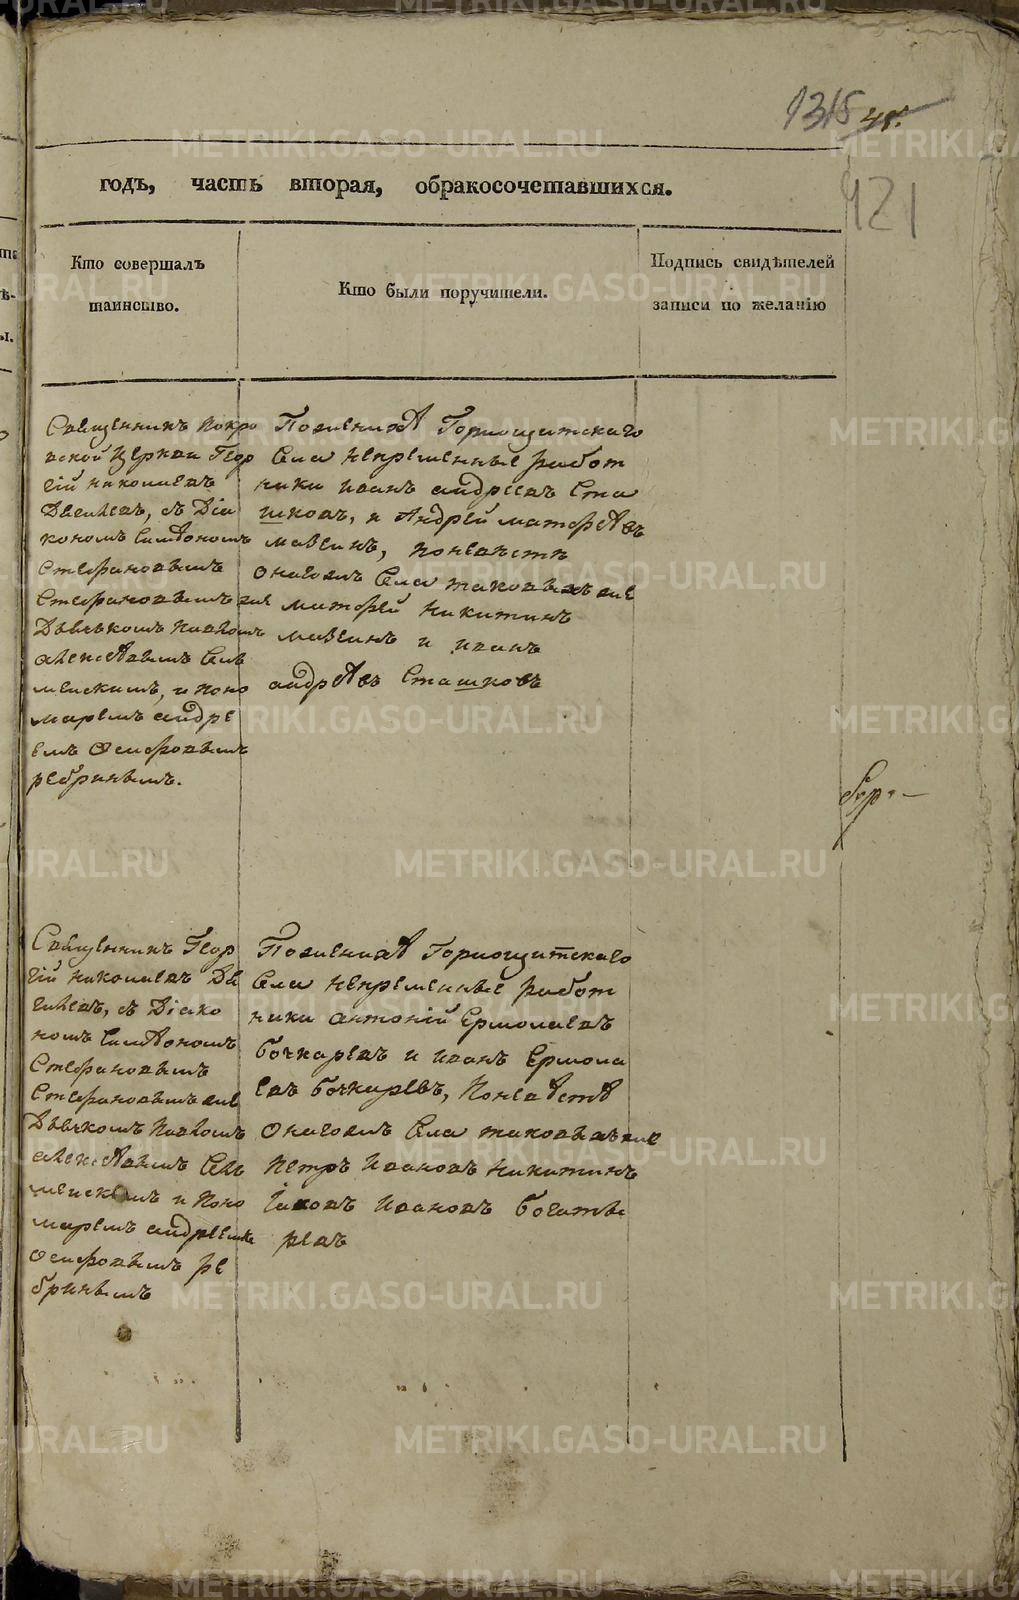 1315 48.
421
годъ, часть вторая, обракосочетавшихся.
Кто совершалъ
таинство.
Кто были поручители.
Подпись свидѣтелей
записи по желанію
Священникъ Покро
вской церкви Геор
гій Николаевъ
съ Діа
кономъ Симѣономъ
Стефановымъ
Стефановымъ же
Дьячкомъ Павломъ
Алексѣевымъ
и Поно
маремъ Андре
емъ Осиповымъ
ребринымъ.
По женихѣ Горнощитскаго
Села непременные работ
ники Иванъ Андреевъ Ста
шковъ, и Андрей Матфѣевъ
Мазеинъ, по невѣстѣ
онагожъ Села таковыежъ
Матфей Никитинъ
Мазеинъ и Иванъ
Андрѣевъ Сташковъ
Священникъ Геор
гій Николаевъ
съ Діако
номъ Симѣономъ
Стефановымъ
Стефановымъ же
Дьячкомъ Павломъ
Алексѣевымъ
и Поно
маремъ Андреемъ
Осиповымъ ре
бринымъ
По женихѣ Горнощитскаго
Села непременные работ
ники Антоній Ермолаевъ
Бочкаревъ и Иванъ Ермола
евъ Бочкаревъ, По невѣстѣ
онагожъ Села таковыежъ
Петръ Ивановъ Никитинъ
Іаковъ Ивановъ Богаты
ревъ